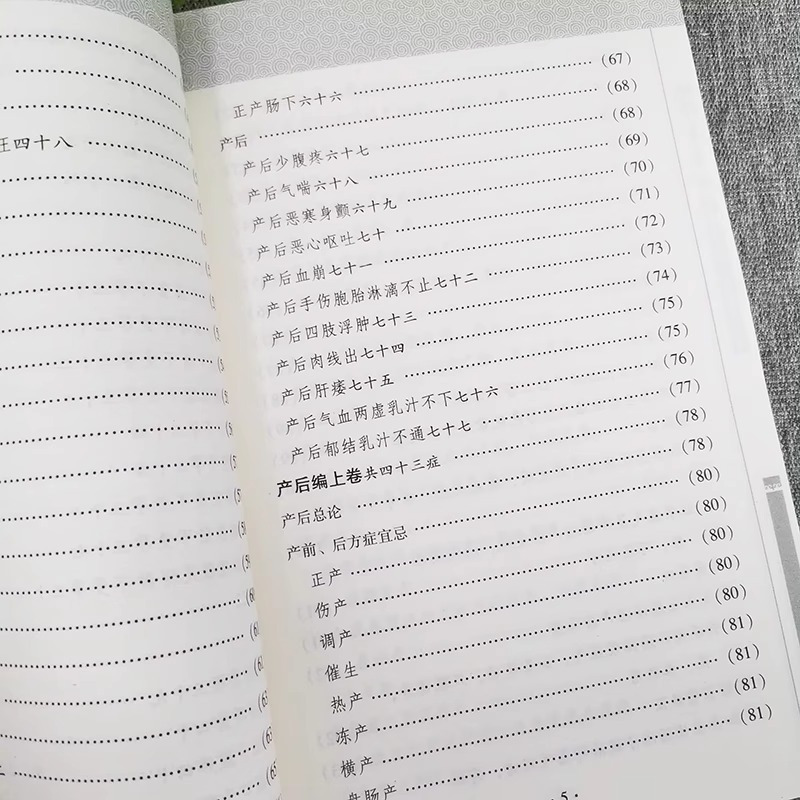 四十八
正产肠下六十六 …… (67)
产后 …… (68)
产后少腹疼六十七 …… (68)
产后气喘六十八 …… (69)
产后恶寒身颤六十九 …… (70)
产后恶心呕吐七十 …… (71)
产后血崩七十一 …… (72)
产后手伤胞胎淋漓不止七十二 …… (73)
产后四肢浮肿七十三 …… (74)
产后肉线出七十四 …… (75)
产后肝痿七十五 …… (75)
产后气血两虚乳汁不下七十六 …… (76)
产后郁结乳汁不通七十七 …… (77)
产后编上卷共四十三症 …… (78)
产后总论 …… (78)
产前、后方症宜忌 …… (80)
正产 …… (80)
伤产 …… (80)
调产 …… (80)
催生 …… (80)
热产 …… (81)
冻产 …… (81)
横产 …… (81)
盘肠产 …… (81)
5 ·